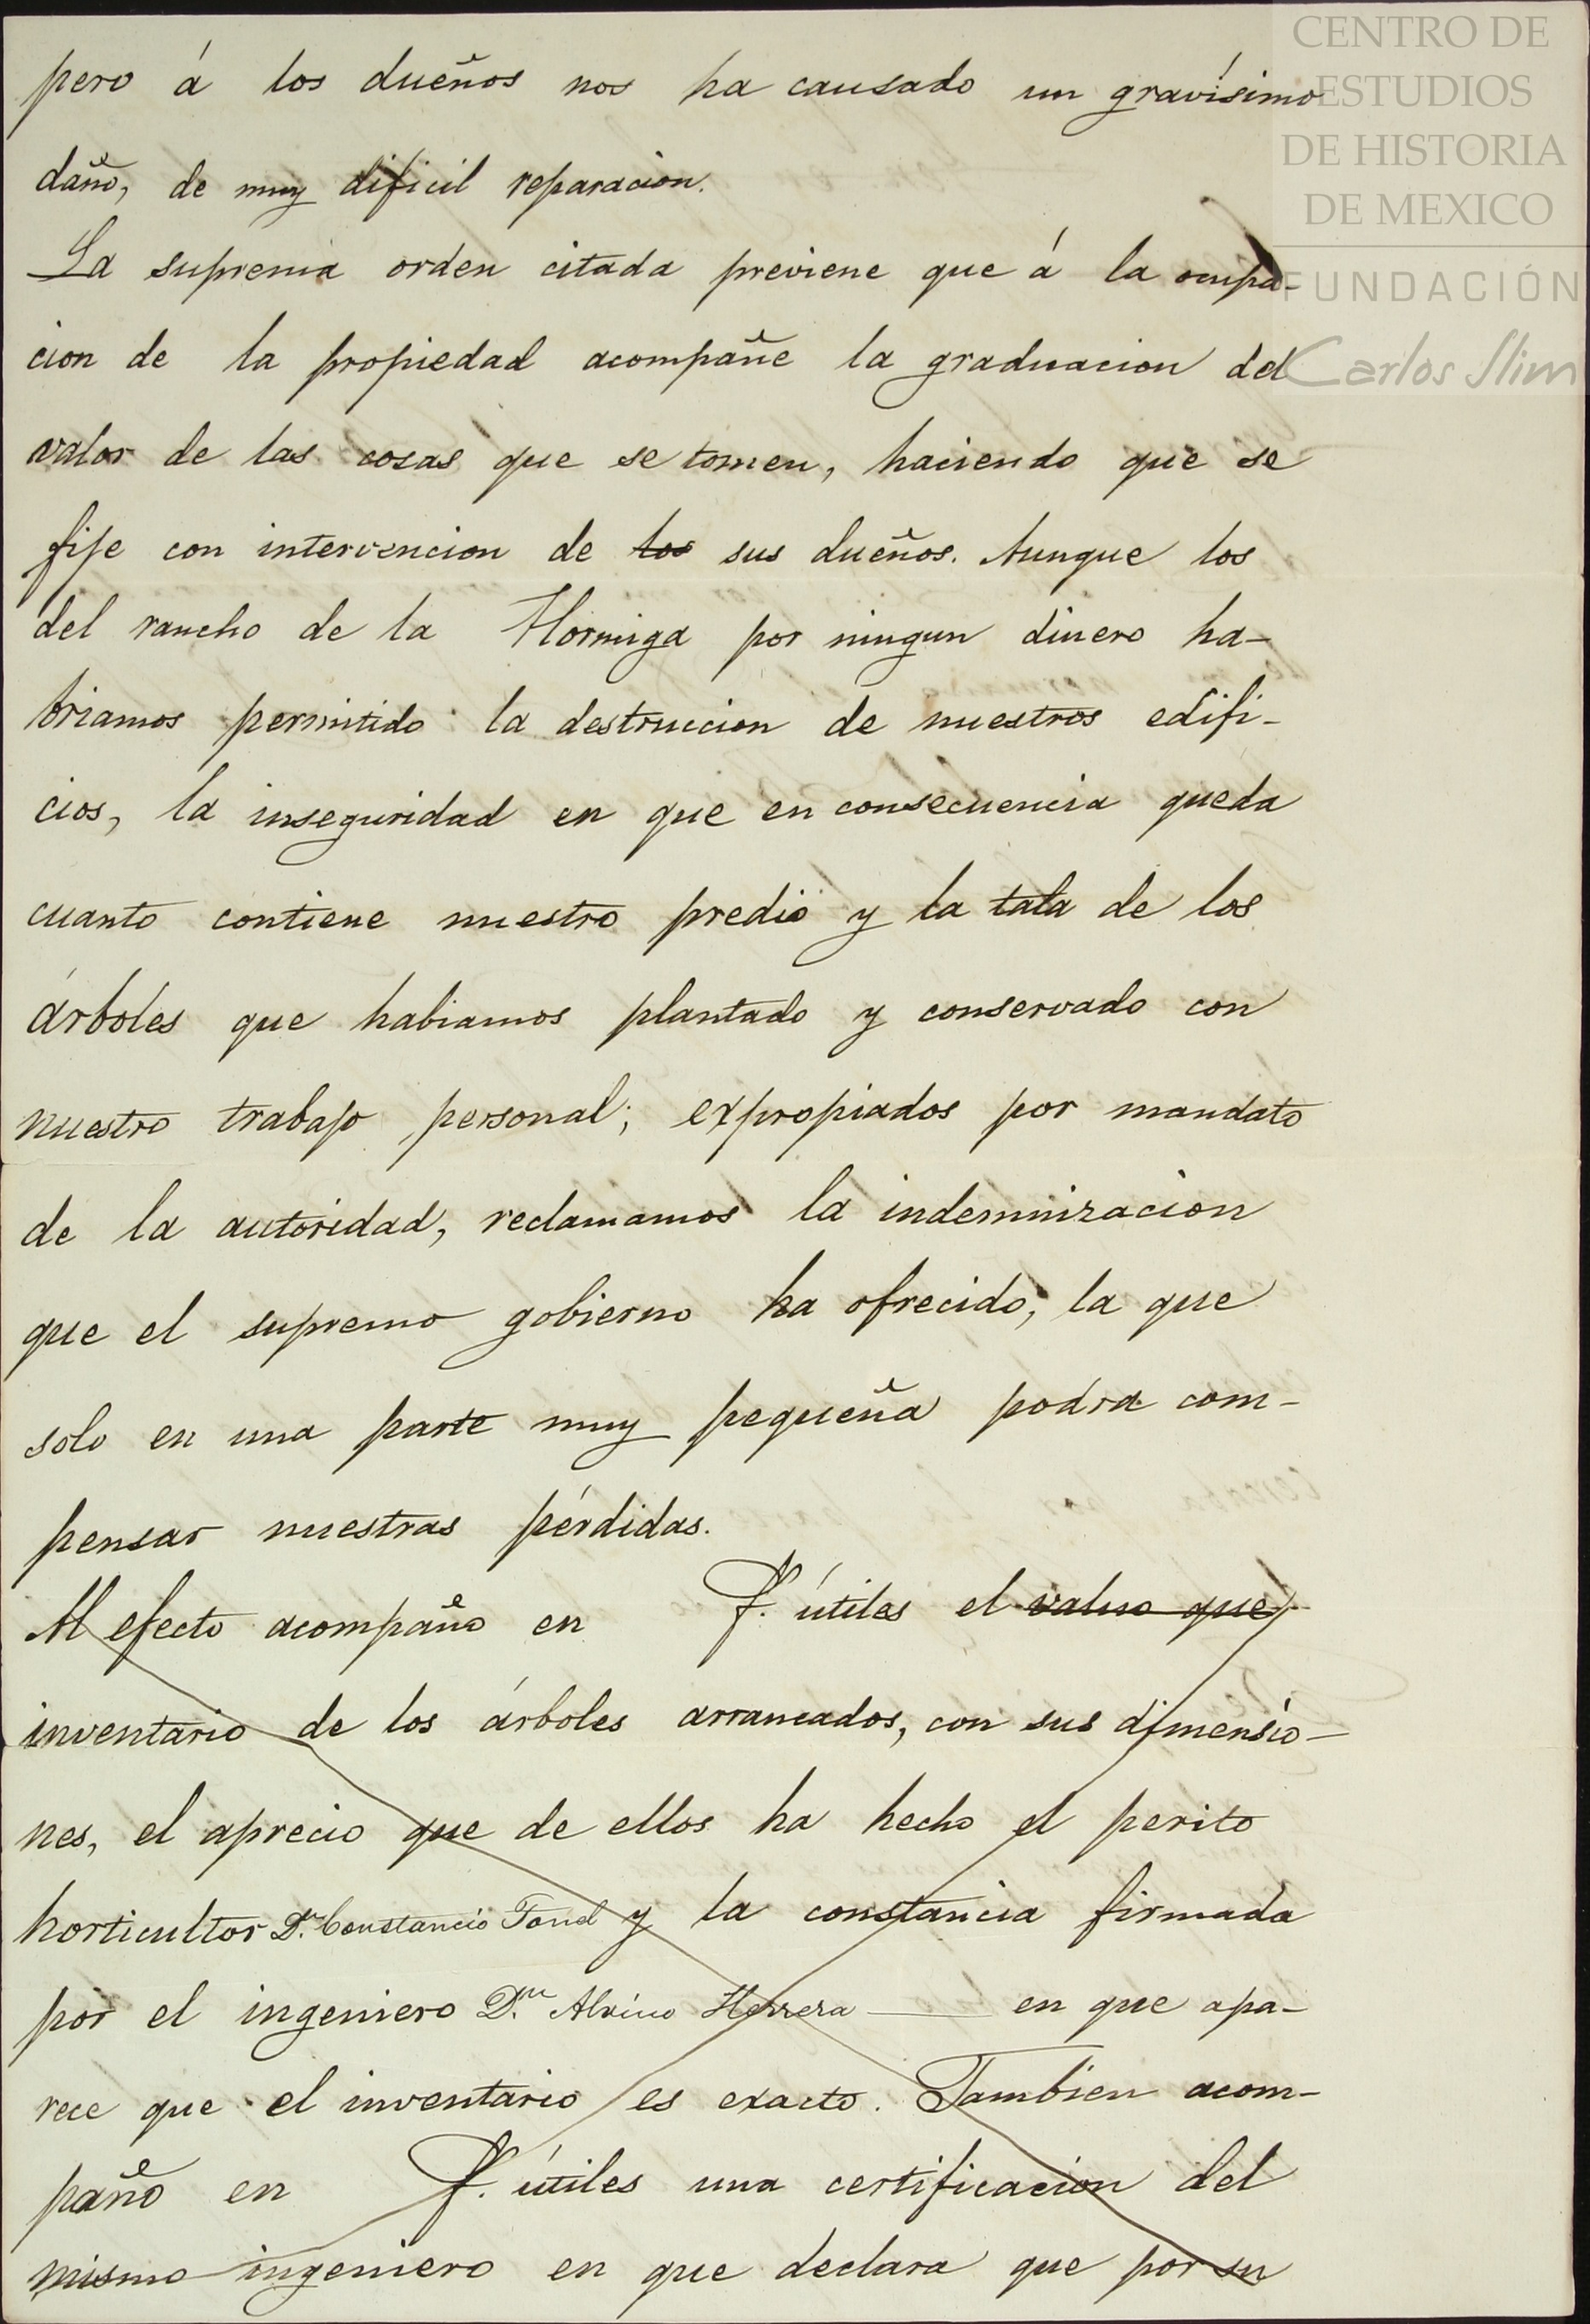 CENTRO DE
ESTUDIOS
DE HISTORIA
DE MEXICO
FUNDACIÓN
Carlos Slim
pero á los dueños nos ha causado un gravísimo
daño, de muy dificil reparacion.
La suprema orden citada previene que á la ocupa-
cion de la propiedad acompañe la graduacion del
valor de las cosas que se tomen, haciendo que se
fije con intervencion de los sus dueños. Aunque los
del rancho de la Hormiga por ningun dinero ha-
briamos permitido la destruccion de nuestros edifi-
cios, la inseguridad en que en consecuencia queda
cuanto contiene nuestro predio y la tala de los
árboles que habiamos plantado y conservado con
nuestro trabajo personal; expropiados por mandato
de la autoridad, reclamamos la indemnizacion
que el supremo gobierno ha ofrecido, la que
solo en una parte muy pequeña podra com-
pensar nuestras pérdidas.
Al efecto acompaño en f. útiles el valuo que
inventario de los árboles arrancados, con sus dimensio-
nes, el aprecio que de ellos ha hecho el perito
horticultor D.n Constancio Tonel y la constancia firmada
por el ingeniero D.n Albino Herrera en que apa-
rece que el inventario es exacto. Tambien acom-
paño en f. útiles una certificacion del
mismo ingeniero en que declara que por su